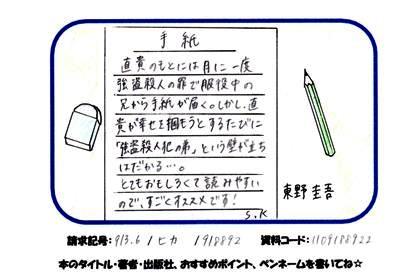 手紙
直貴のもとには月に一度
強盗殺人の罪で服役中の
兄から手紙が届く。しかし、直
貴が幸せを掴もうとするたびに
「強盗殺人犯の弟」という壁が立ち
はだかる…。
とてもおもしろくて読みやすい
ので、すごくオススメです!
S.K
東野圭吾
請求記号: 913.6 / ヒカ / 918892 資料コード: 1109188922
本のタイトル・著者・出版社、おすすめポイント、ペンネームを書いてね☆